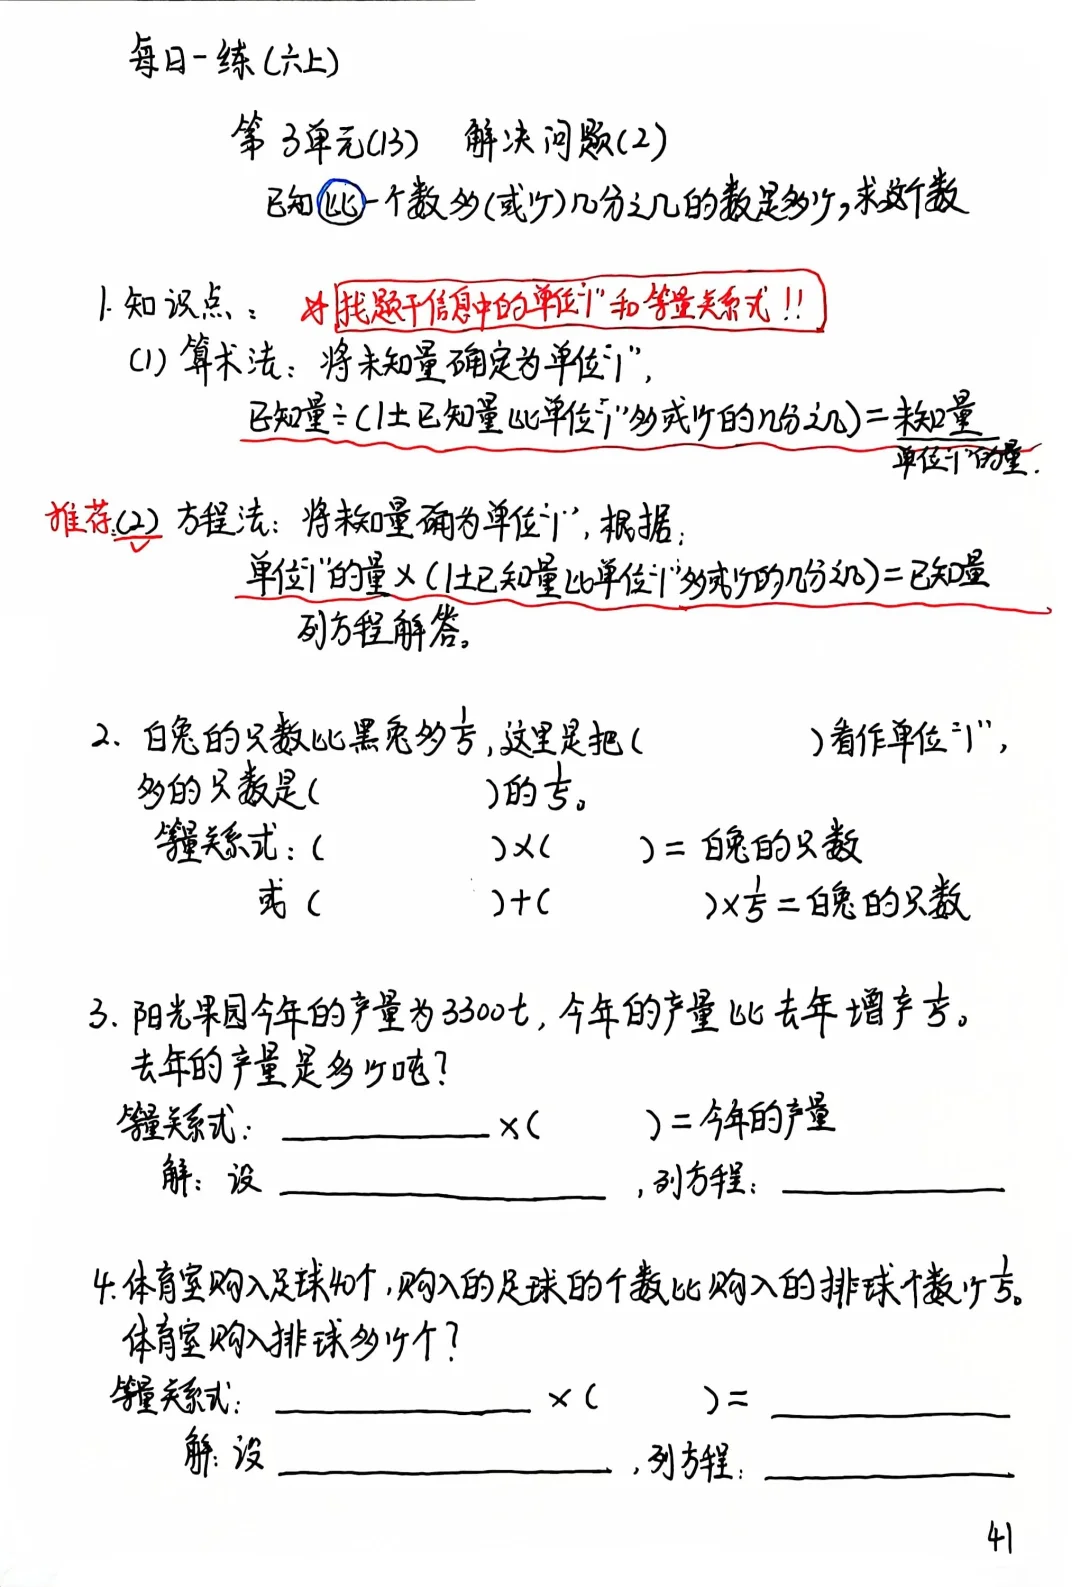 每日一练(六上)
第3单元(13) 解决问题(2)
已知比一个数多(或少)几分之几的数是多少,求这个数
1.知识点: ☆找题干信息中的单位"1"和等量关系式!!
(1)算术法:将未知量确定为单位"1",
已知量÷(1±已知量比单位"1"多或少的几分之几)=未知量
单位"1"的量.
推荐:(2)方程法:将未知量确为单位"1",根据:
单位"1"的量×(1±已知量比单位"1"多或少的几分之几)=已知量
列方程解答。
2、白兔的只数比黑兔多1/5,这里是把( )看作单位"1",
多的只数是( )的1/5。
等量关系式:( )×( )=白兔的只数
或( )+( )×1/5=白兔的只数
3.阳光果园今年的产量为3300t,今年的产量比去年增产1/5。
去年的产量是多少吨?
等量关系式: ______×( )=今年的产量
解:设______,列方程:______
4.体育室购入足球40个,购入的足球的个数比购入的排球个数少1/5。
体育室购入排球多少个?
等量关系式: ______×( )=______
解:设______,列方程:______
41